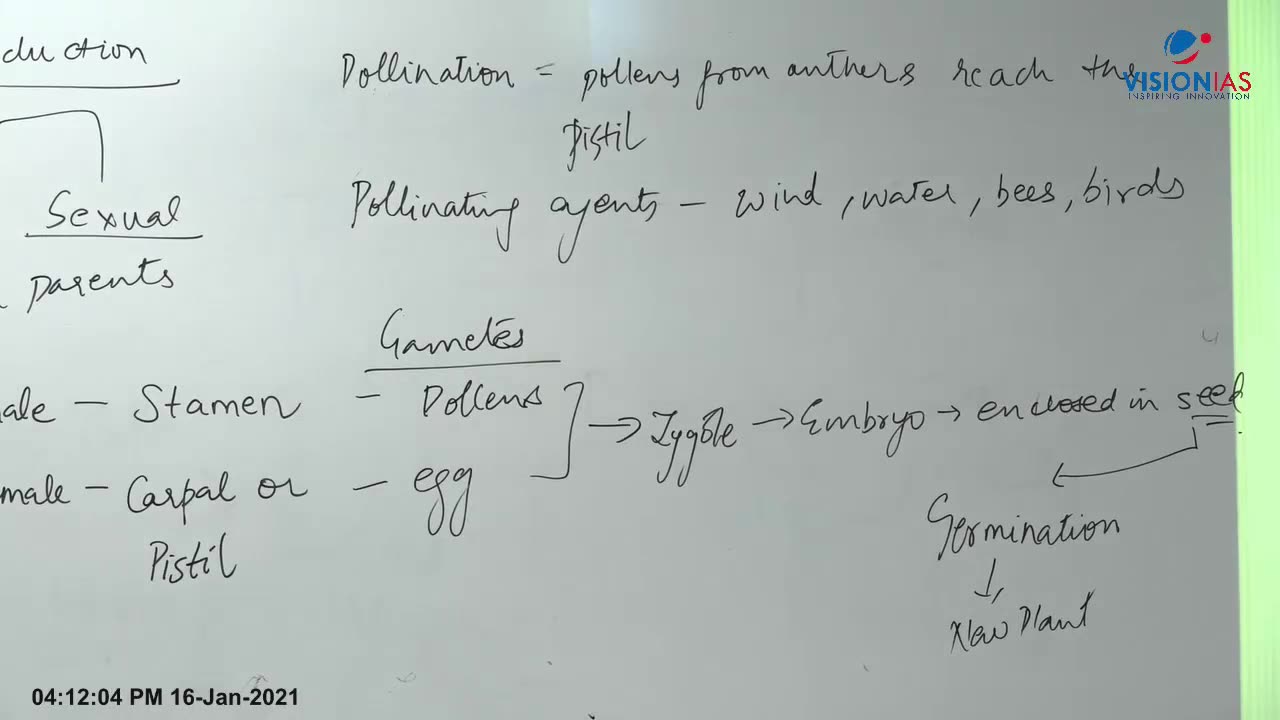 duction
Pollination = pollens from anthers reach the
Pistil
VISIONIAS
INSPIRING INNOVATION
Pollinating agents - wind, water, bees, birds
Sexual
parents
Gametes
ale - Stamen - Pollens
→ Zygote → Embryo → enclosed in seed
male - Carpal or - egg
Pistil
Germination
↓
New Plant
04:12:04 PM 16-Jan-2021